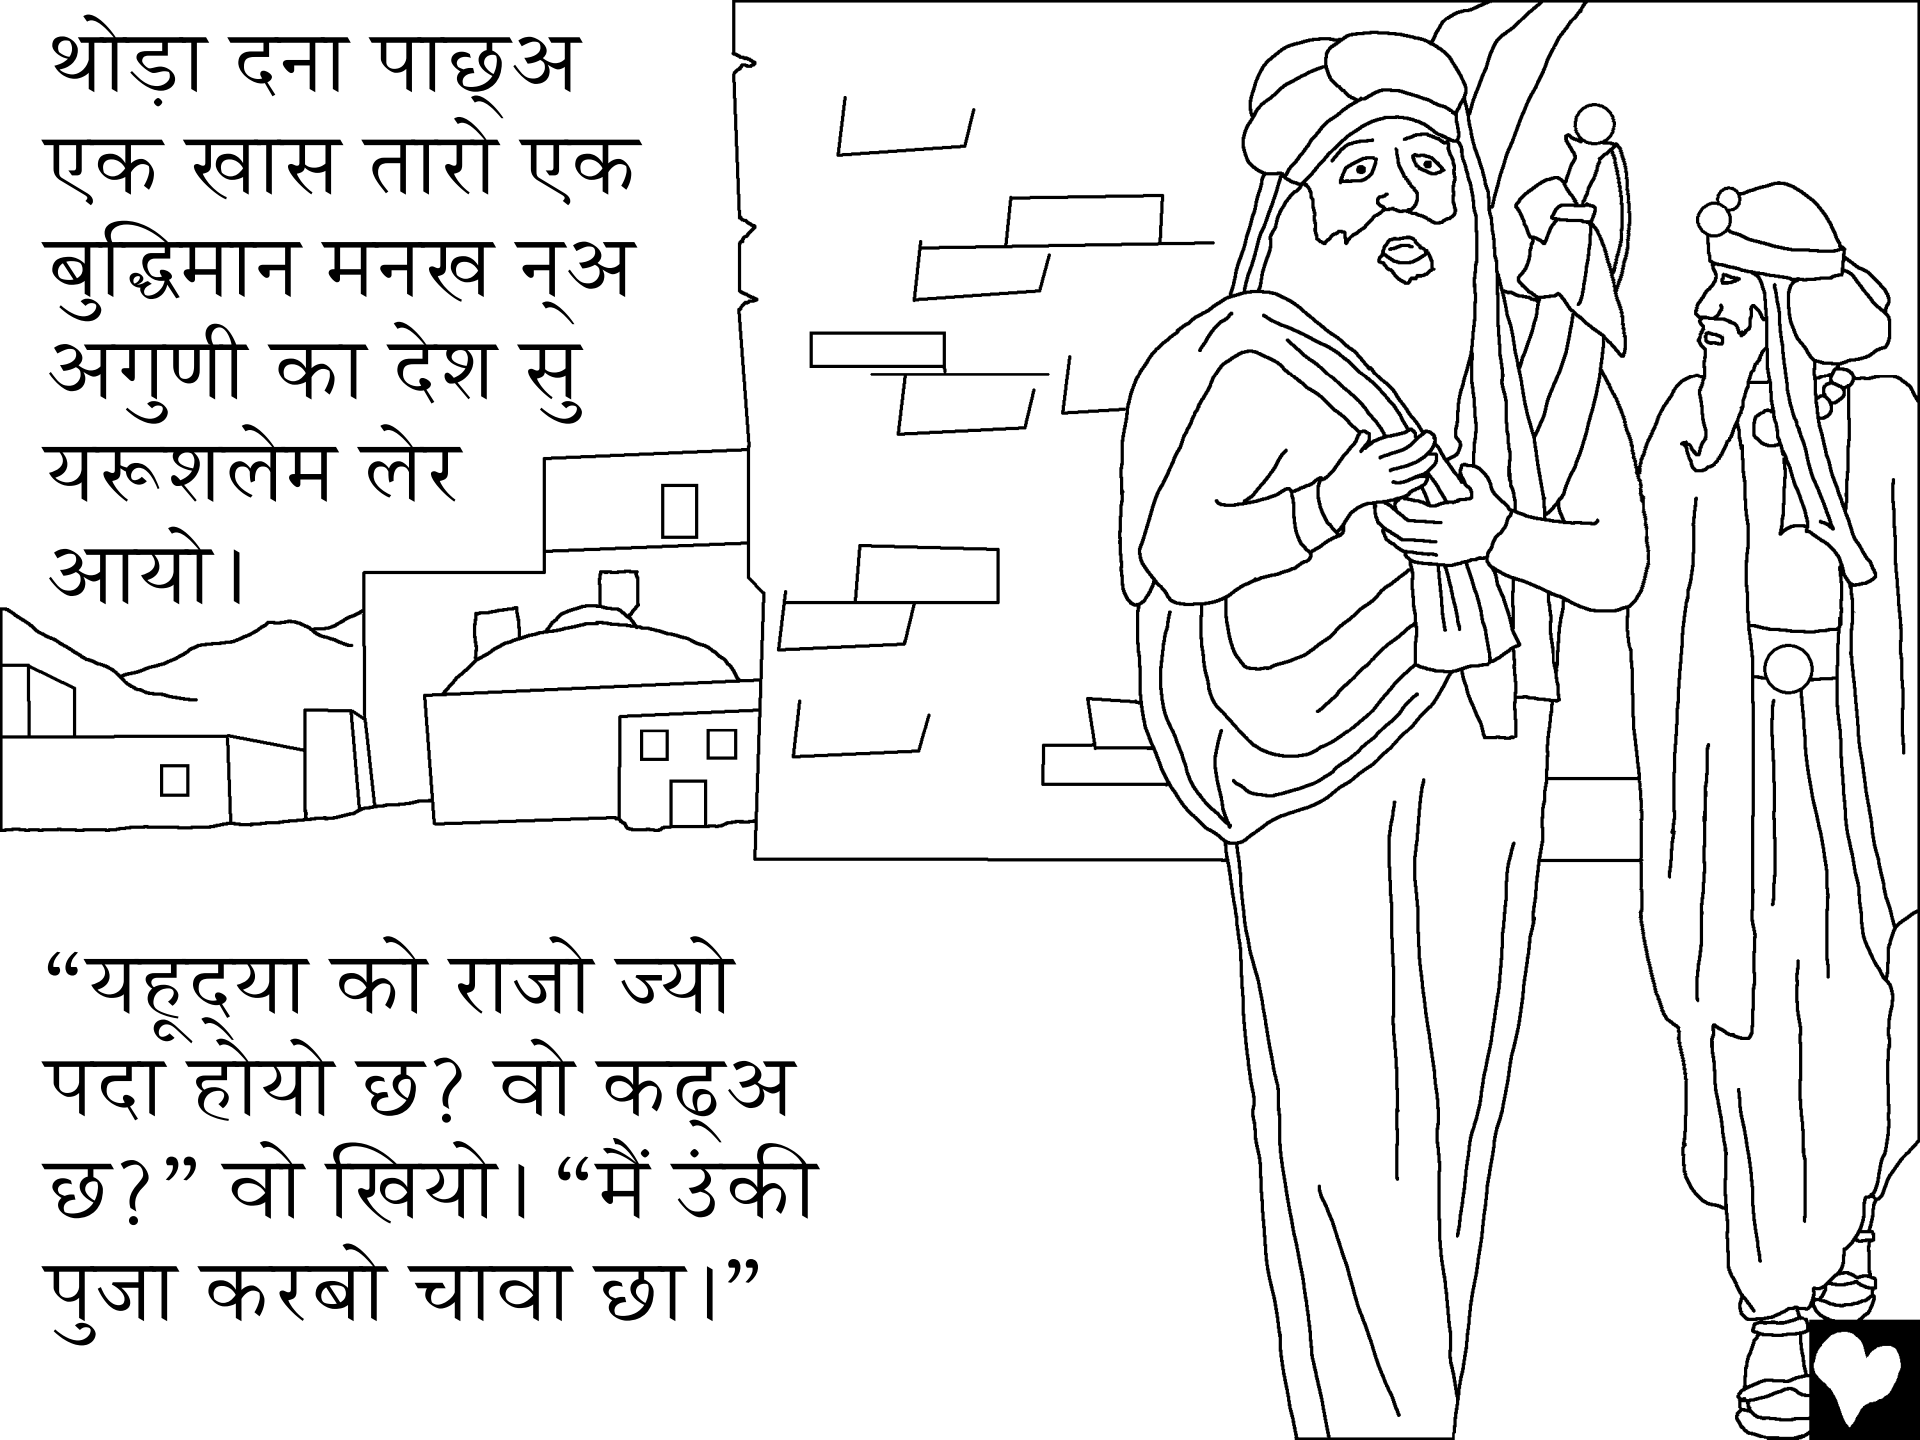 थोड़ा दना पाछ्अ
एक खास तारो एक
बुद्धिमान मनख न्अ
अगुणी का देश सु
यरूशलेम लेर
आयो।
“यहूदया को राजो ज्यो
पदा होयो छ? वो कढ्अ
छ?” वो खियो। “मैं उंकी
पुजा करबो चावा छा।”